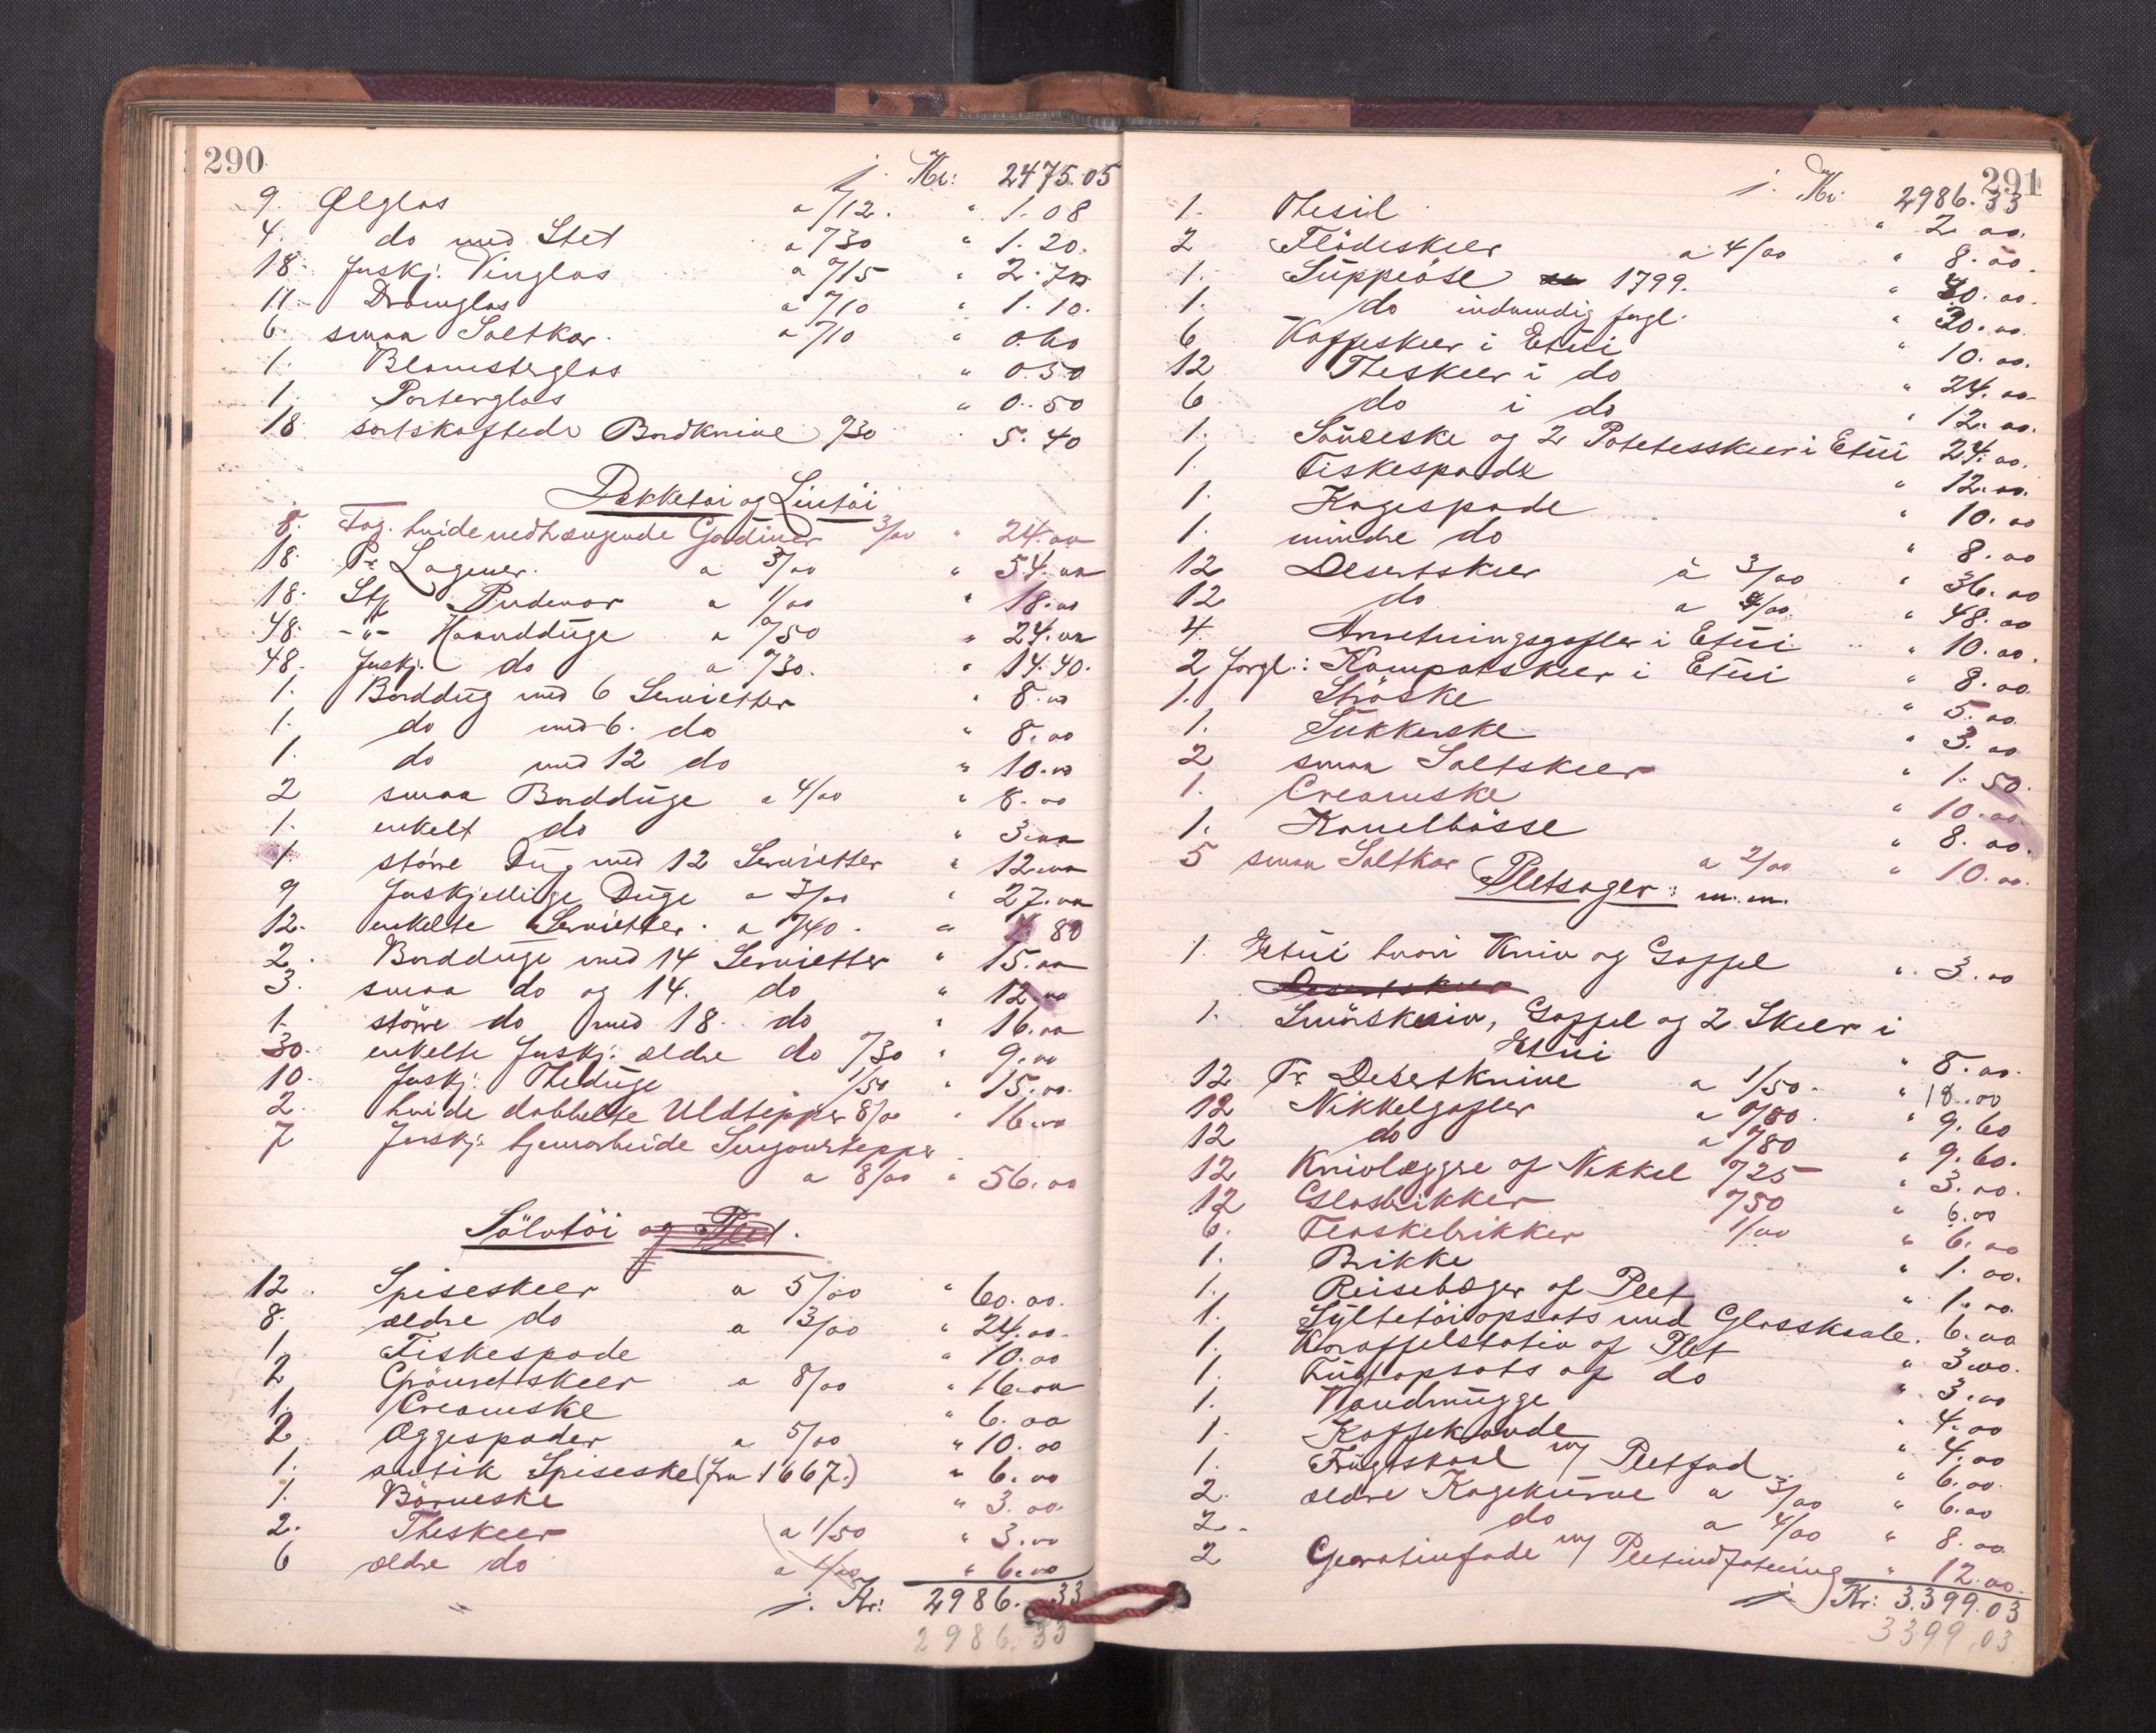 290
j. Kr: 2475.05
9. Ølglas a "/12. " 1.08
4. do med Stet a "/30 " 1.20.
18. forskj. Vinglas a "/15 " 2.70
11. Dramglas a "/10 " 1.10.
6. smaa Saltkar. a "/10 " 0.60
1. Blomsterglas " 0.50
1. Porterglas " 0.50
18 sortskaftede Bordknive "/30 5.40
Dækketöi og Lintöi
8. Fag. hvide nedhængende Gardiner 3/00 " 24.00
18. Pr Lagener. a 3/00 " 54.00
18. Stk Pudevar a 1/00 " 18.00
48. -"- Haandduge a "/50 " 24.00
48. forskj. do a "/30. " 14.40.
1. Borddug med 6 Servietter " 8.00
1. do med 6. do " 8.00
1. do med 12 do " 10.00
2 smaa Bordduge a 4/00 " 8.00
1. enkelt do " 3.00
1. större Dug med 12 Servietter " 12.00
9 forskjellige Duge a 3/00 " 27.00
12. enkelte Servietter. a "/40. " 4 80
2. Bordduge med 14 Servietter " 15.00
3. smaa do og 14. do " 12.00
1. större do med 18. do " 16.00
30. enkelte forskj. ældre do "/30 " 9.00
10. forskj: Theduge 1/50 " 15.00.
2. hvide dobbelte Uldtepper 8/00 " 16.00
7 forskj: hjemarbeide Sengeutepper
a 8/00 " 56.00
Sölvtöi og Plet.
12. Spiseskeer a 5/00 " 60.00.
8. ældre do a 3/00 " 24.00.
1. Fiskespade " 10.00
2 Grönsetskeer a 8/00 " 16.00
1. Creamske " 6.00
2 Æggespader a 5/00 " 10.00
1. antik Spiseske (fra 1667.) " 6.00
1. Börneske " 3.00.
2. Theskeer a 1/50 " 3.00
6 ældre do a 1/00 " 6.00
j. Kr: 2986.33
2986.33
291
j. Kr: 2986.33
1. Thesil " 2.00.
2 Flödeskeer a 4/00 " 8.00.
1. Suppeöse 1799. " 40.00.
1. do indvendig forgl. " 30.00.
6 Kaffeskeer i Etui " 10.00.
12 Theskeer i do " 24.00.
6 do i do " 12.00.
1. Sauceske og 2 Potetesskeer i Etui 24.00.
1. Fiskespade " 12.00.
1. Kagespade " 10.00
1. mindre do " 8.00
12 Desertskeer à 3/00 " 36.00
12 do a 4/00 " 48.00
4. Anretningsgafler i Etui " 10.00.
2 forgl.: Kompotskeer i Etui " 8.00.
1. Ströske " 5.00.
1. Sukkerske " 3.00
2 smaa Saltskeer " 1.50.
1. Creamske " 10.00.
1. Kanelbösse " 8.00.
5 smaa Saltkar a 2/00 " 10.00.
Pletsager: m.m.
1. Etui hvori Kniv og Gaffel " 3.00
Desertskeer
1. Smörskniv, Gaffel og 2 Skeer i
Etui " 8.00.
12 Pr Desertknive a 1/50. " 18.00
12 Nikkelgafler a "/80. " 9.60
12 do a "/80 " 9.60.
12 Knivlæggre af Nikkel "/25 " 3.00.
12 Glasbrikker "/50 " 6.00
6. Flaskebrikker 1/00 " 6.00
1. Brikke " 1.00.
1. Reisebæger af Plet " 1.00.
1. Syltetöiopsats med Glasskaale. 6.00
1. Karaffelstativ af Plet " 3.00.
1. Frugtopsats af do " 3.00
1. Vandmugge " 4.00
1. Kaffekande " 4.00
1. Frugtskaal m/ Pletfad " 6.00.
2. ældre Kagekurve a 3/00 " 6.00
2. do a 4/00 " 8.00
2 Gratinfade m/ Pletindfatning " 12.00.
j. Kr: 3.399.03
3399,03